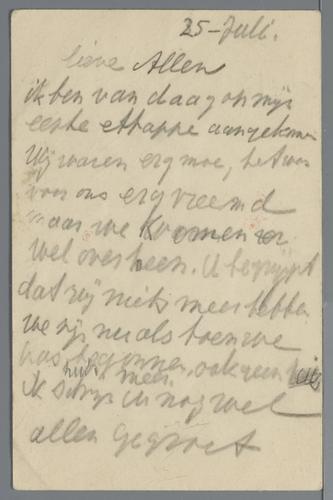 25-Juli.
lieve Allen
ik ben van daag op mijn
eerste ettappe aangekomen
Wij waren erg moe, het was
voor ons erg vreemd
maar we komen er
wel overheen. U begrijpt
dat wij niets meer hebben
we zijn nu als toen we
was begonnen, ook geen
huis meer
ik schrijf U nog wel
allen gegroet